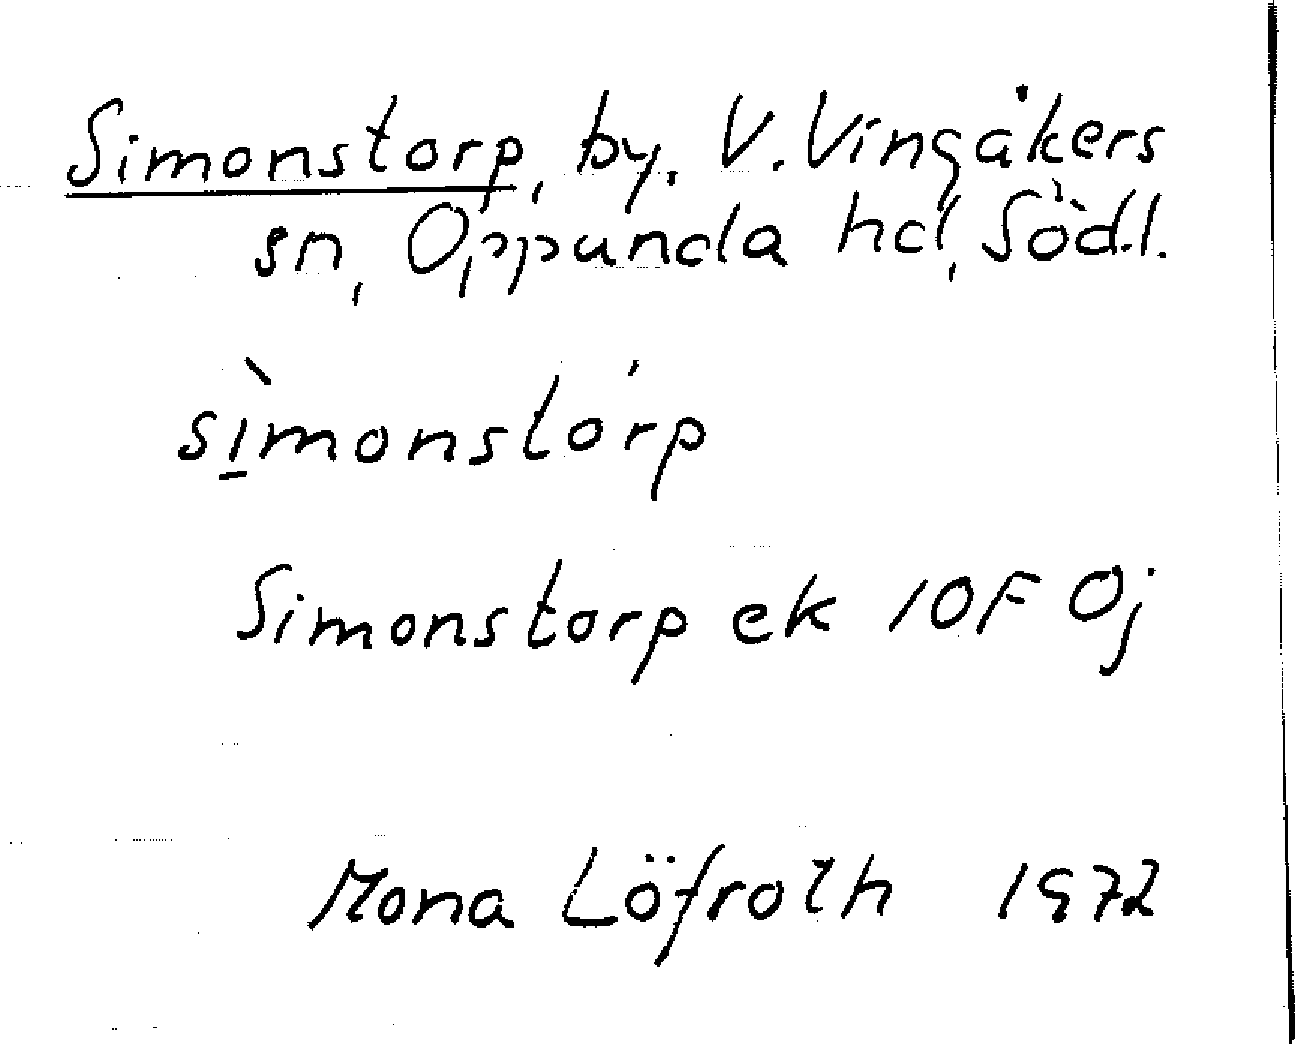 Simonstorp, by, V. Vingåkers
sn, Oppunda hd, Södl.
sı̱̀monstórp
Simonstorp ek 10F 0j
Mona Löfroth 1972